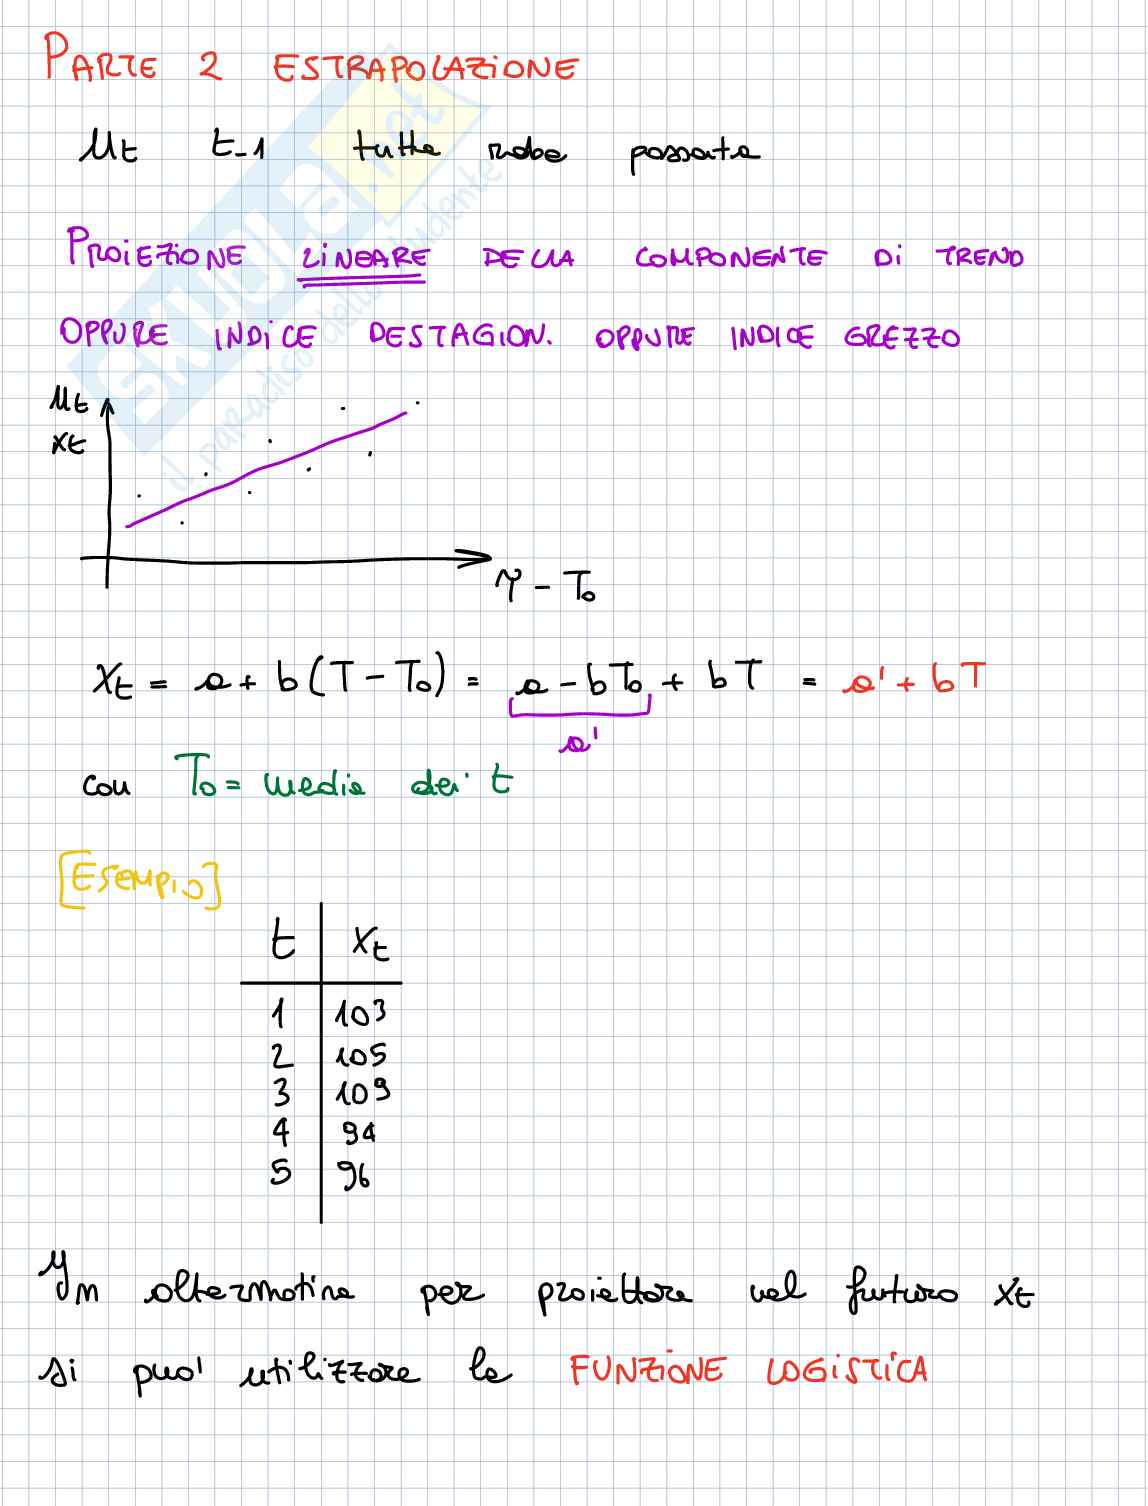 PARTE 2 ESTRAPOLAZIONE
μt t-1 tutta roba passata
PROIEZIONE LINEARE DELLA COMPONENTE Di TREND
OPPURE INDICE DESTAGION. OPPURE INDICE GREZZO
μt
xt
T - T₀
Xt = a + b (T - T₀) = a - bT₀ + bT = a' + bT
a'
con T₀ = media dei t
[ESEMPIO]
t xt
1 103
2 105
3 109
4 94
5 96
In alternativa per proiettare nel futuro xt
si puo' utilizzare la FUNZIONE LOGISTICA
SKUOLA.net
il paradiso dello studente